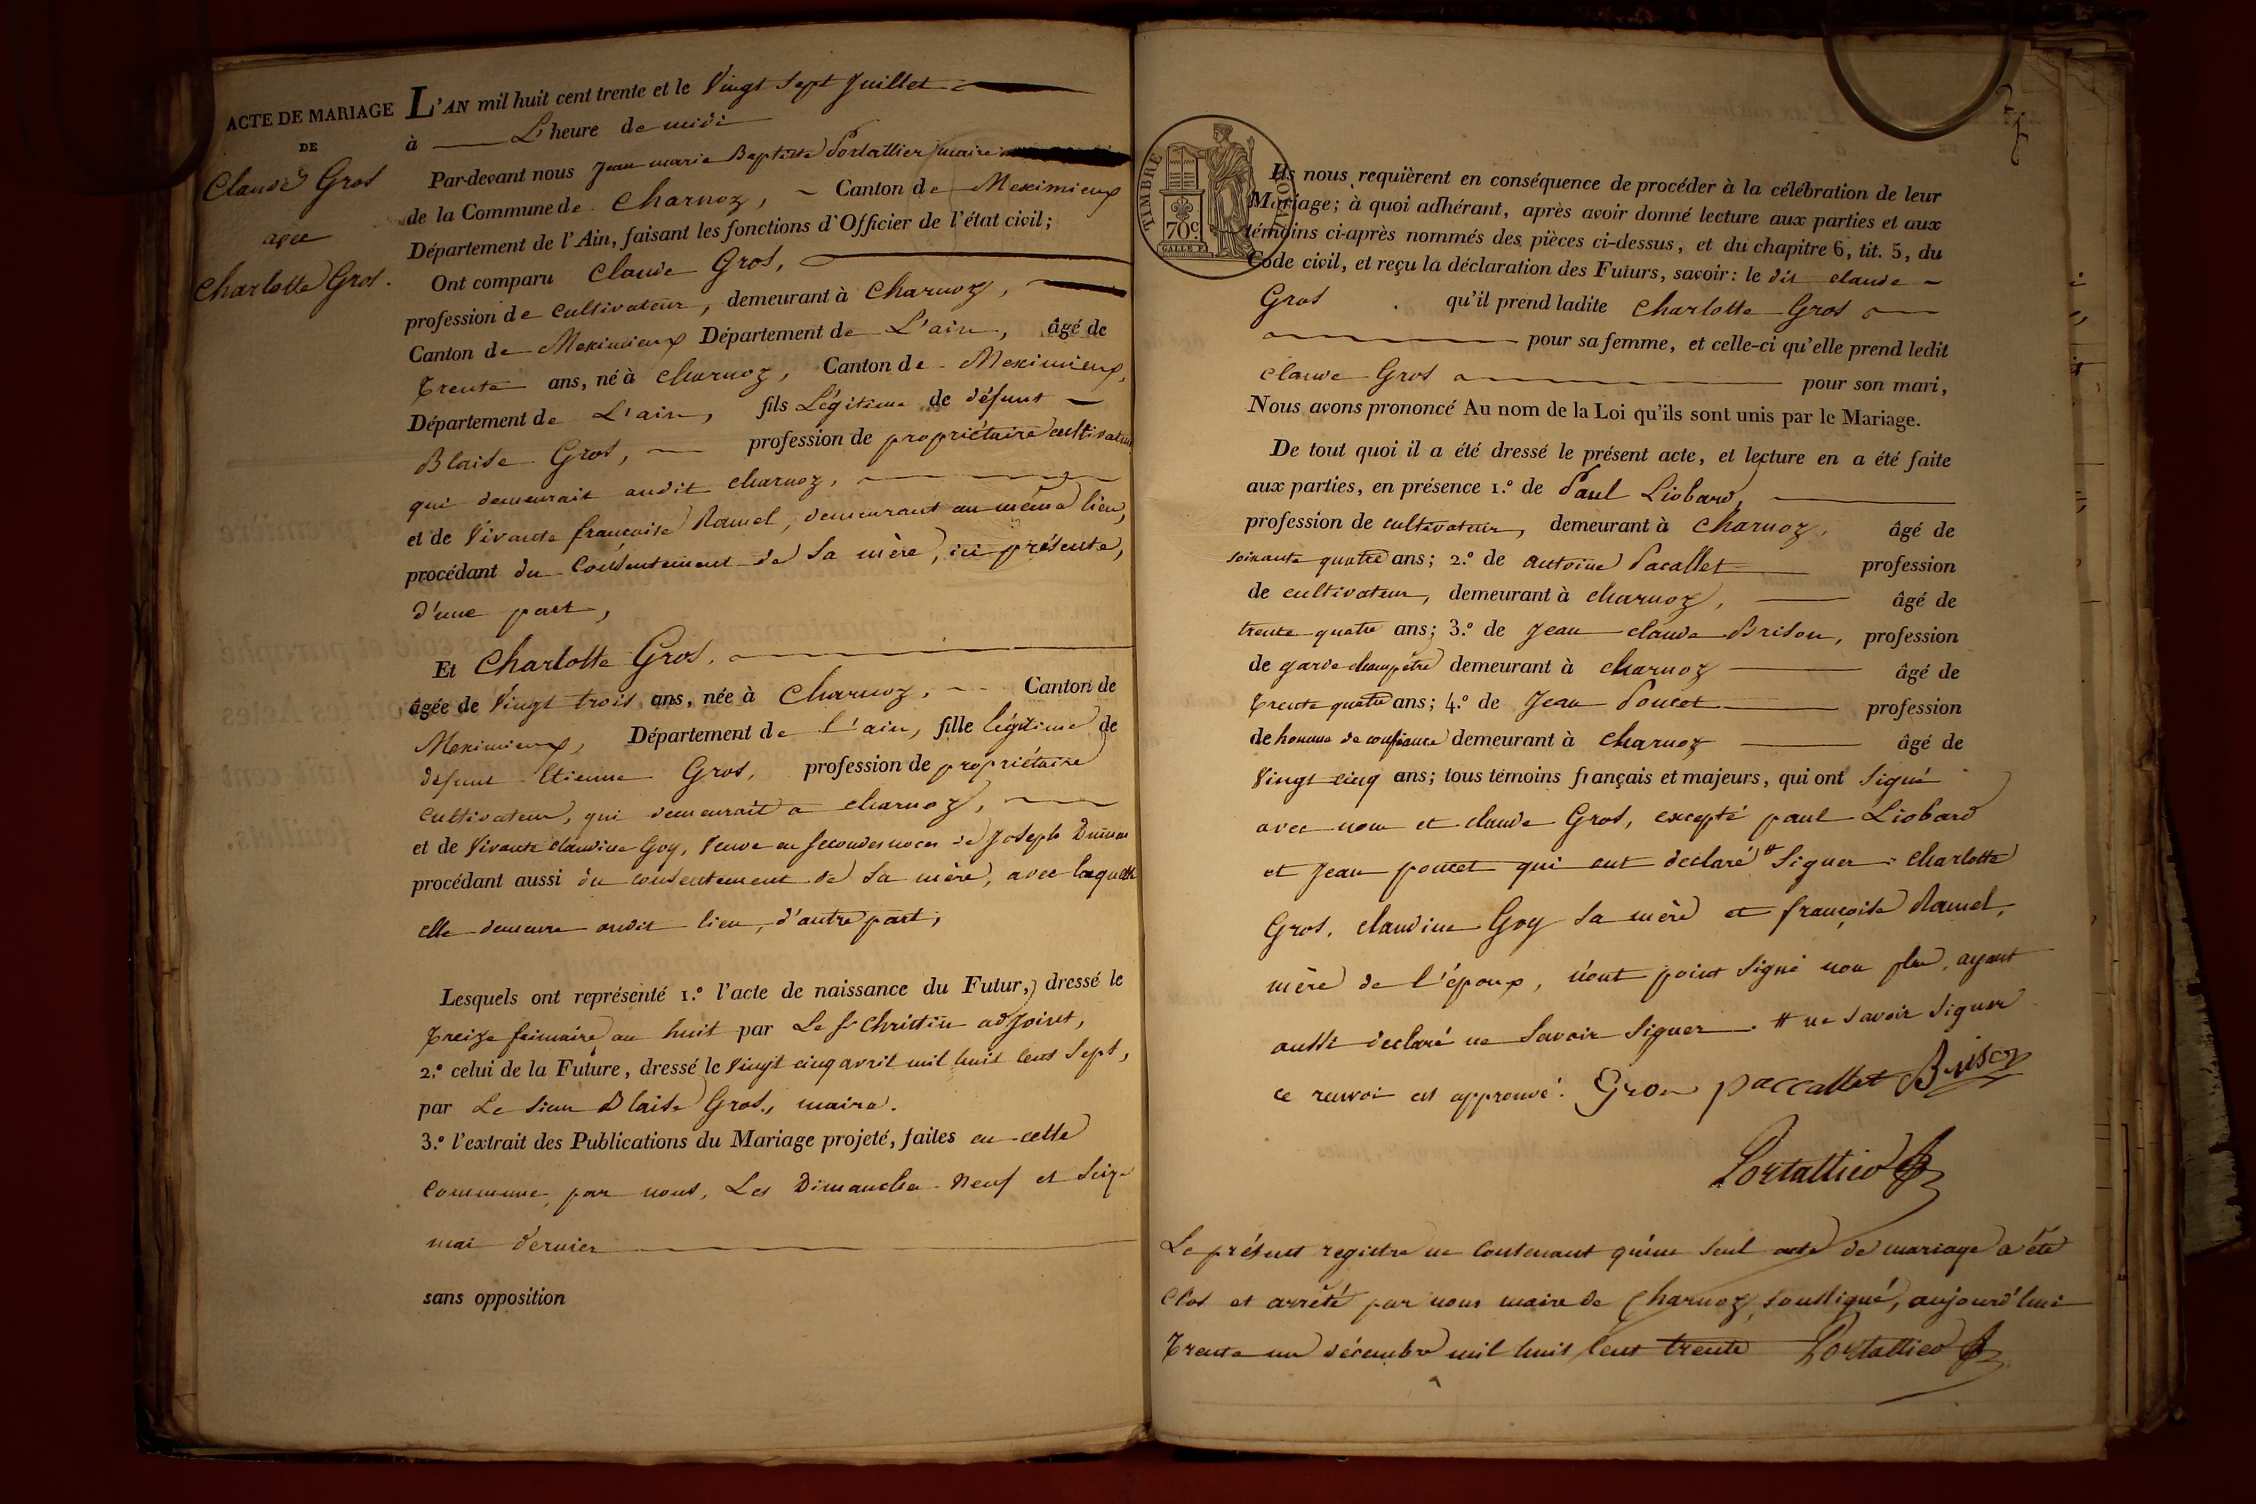 ACTE DE MARIAGE
DE
Claude Gros
avec
Charlotte Gros.
L'AN mil huit cent trente et le Vingt Sept Juillet
à L'heure de midi
Par-devant nous Jean marie Baptiste Portallier maire
de la Commune de Charnoz, Canton de Meximieux
Département de l'Ain, faisant les fonctions d'Officier de l'état civil;
Ont comparu Claude Gros,
profession de Cultivateur, demeurant à Charnoz,
Canton de Meximieux Département de L'ain, âgé de
Trente ans, né à Charnoz, Canton de Meximieux,
Département de L'ain, fils Légitime de défunt
Blaise Gros, profession de propriétaire cultivateur
qui demeurait audit Charnoz,
et de Vivante françoise Ramel, demeurant au même lieu,
procédant du Consentement de Sa mère, ici présente,
d'une part,
Et Charlotte Gros.
âgée de Vingt trois ans, née à Charnoz, Canton de
Meximieux, Département de L'ain, fille légitime de
défunt Etienne Gros, profession de propriétaire
Cultivateur, qui demeurait a Charnoz,
et de Vivante Claudine Goy, Veuve en Secondes noces de Joseph
procédant aussi du consentement de Sa mère, avec laquelle
elle demeure audit lieu, d'autre part;
Lesquels ont représenté 1.º l'acte de naissance du Futur, dressé le
Treize frimaire an huit par Le Sr Christin adjoint,
2.º celui de la Future, dressé le Vingt cinq avril mil huit Cent Sept,
par Le Sieur Blaise Gros, maire.
3.º l'extrait des Publications du Mariage projeté, faites en cette
Commune par nous, Les Dimanches Neuf et Seize
mai dernier
sans opposition
TIMBRE ROYAL
70c
Ils nous requièrent en conséquence de procéder à la célébration de leur
Mariage; à quoi adhérant, après avoir donné lecture aux parties et aux
témoins ci-après nommés des pièces ci-dessus, et du chapitre 6, tit. 5, du
Code civil, et reçu la déclaration des Futurs, savoir: le dit Claude
Gros qu'il prend ladite Charlotte Gros
pour sa femme, et celle-ci qu'elle prend ledit
Claude Gros pour son mari,
Nous avons prononcé Au nom de la Loi qu'ils sont unis par le Mariage.
De tout quoi il a été dressé le présent acte, et lecture en a été faite
aux parties, en présence 1.º de Paul Liobard,
profession de cultivateur, demeurant à Charnoz, âgé de
soixante quatre ans; 2.º de antoine Pacallet profession
de cultivateur, demeurant à Charnoz, âgé de
trente quatre ans; 3.º de Jean Claude Brison, profession
de garde champêtre demeurant à Charnoz âgé de
Trente quatre ans; 4.º de Jean Poncet profession
de homme de confiance demeurant à Charnoz âgé de
Vingt cinq ans; tous témoins français et majeurs, qui ont Signé
avec nous et Claude Gros, excepté paul Liobard
et Jean poncet qui ont déclaré # Signer. Charlotte
Gros, Claudine Goy Sa mère et françoise Ramel,
mère de l'époux, n'ont point Signé non plus, ayant
aussi déclaré ne Savoir Signer. # ne Savoir Signer
ce renvoi est approuvé. Gros Paccallet Brison
Portallier
Le présent registre ne Contenant qu'un Seul acte de mariage a été
Clos et arrêté par nous maire de Charnoz, soussigné, aujourd'hui
Trente un décembre mil huit Cent trente Portallier